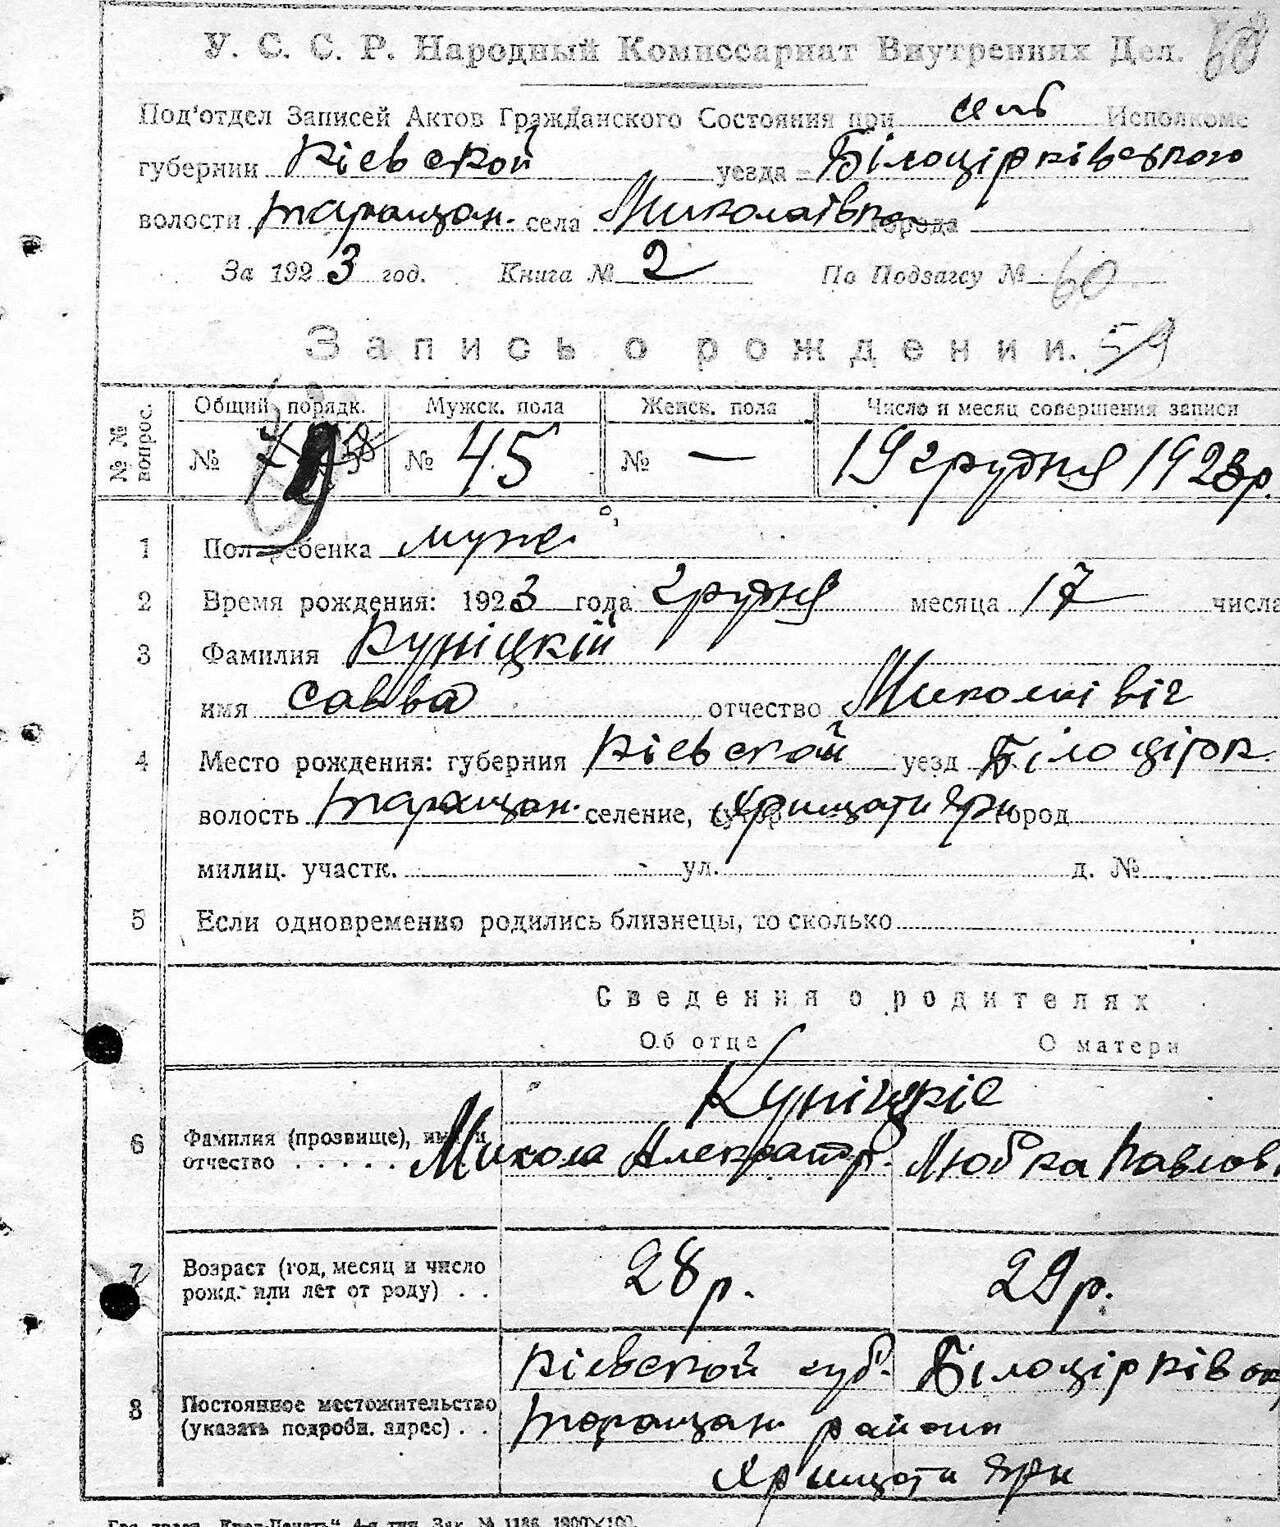 У. С. С. Р. Народный Комиссариат Внутренних Дел. 60
Под'отдел Записей Актов Гражданского Состояния при сельб Исполкоме
губернии Кіевской уезда Білоцірківського
волости Таращан. села Миколаївка города
За 1923 год. Книга № 2 По Подзагсу № 60
Запись о рождении. 59
№ № вопрос. Общий порядк. Мужск. пола Женск. пола Число и месяц совершения записи
№ № 45 № — 19 грудня 1923р.
1 Пол ребенка муже
2 Время рождения: 1923 года грудня месяца 17 числа
3 Фамилия Куніцкій
имя Савва отчество Миколаівіч
4 Место рождения: губерния Кіевской уезд Білоцірк.
волость Таращан. селение, хутор Хрищати Яри город
милиц. участк. ул. д. №
5 Если одновременно родились близнецы, то сколько
Сведения о родителях
Об отце О матери
Куніцкіе
6 Фамилия (прозвище), имя и
отчество . . . . . Микола Александр. Любка Павлов
7 Возраст (год, месяц и число
рожд. или лет от роду) . . 28р. 29р.
Кіевской губ. Білоцірків ок
8 Постоянное местожительство
(указать подробн. адрес) . . Таращан района
Хрищати Яри
4-я тип. Зак. № 1186. 1900×100.